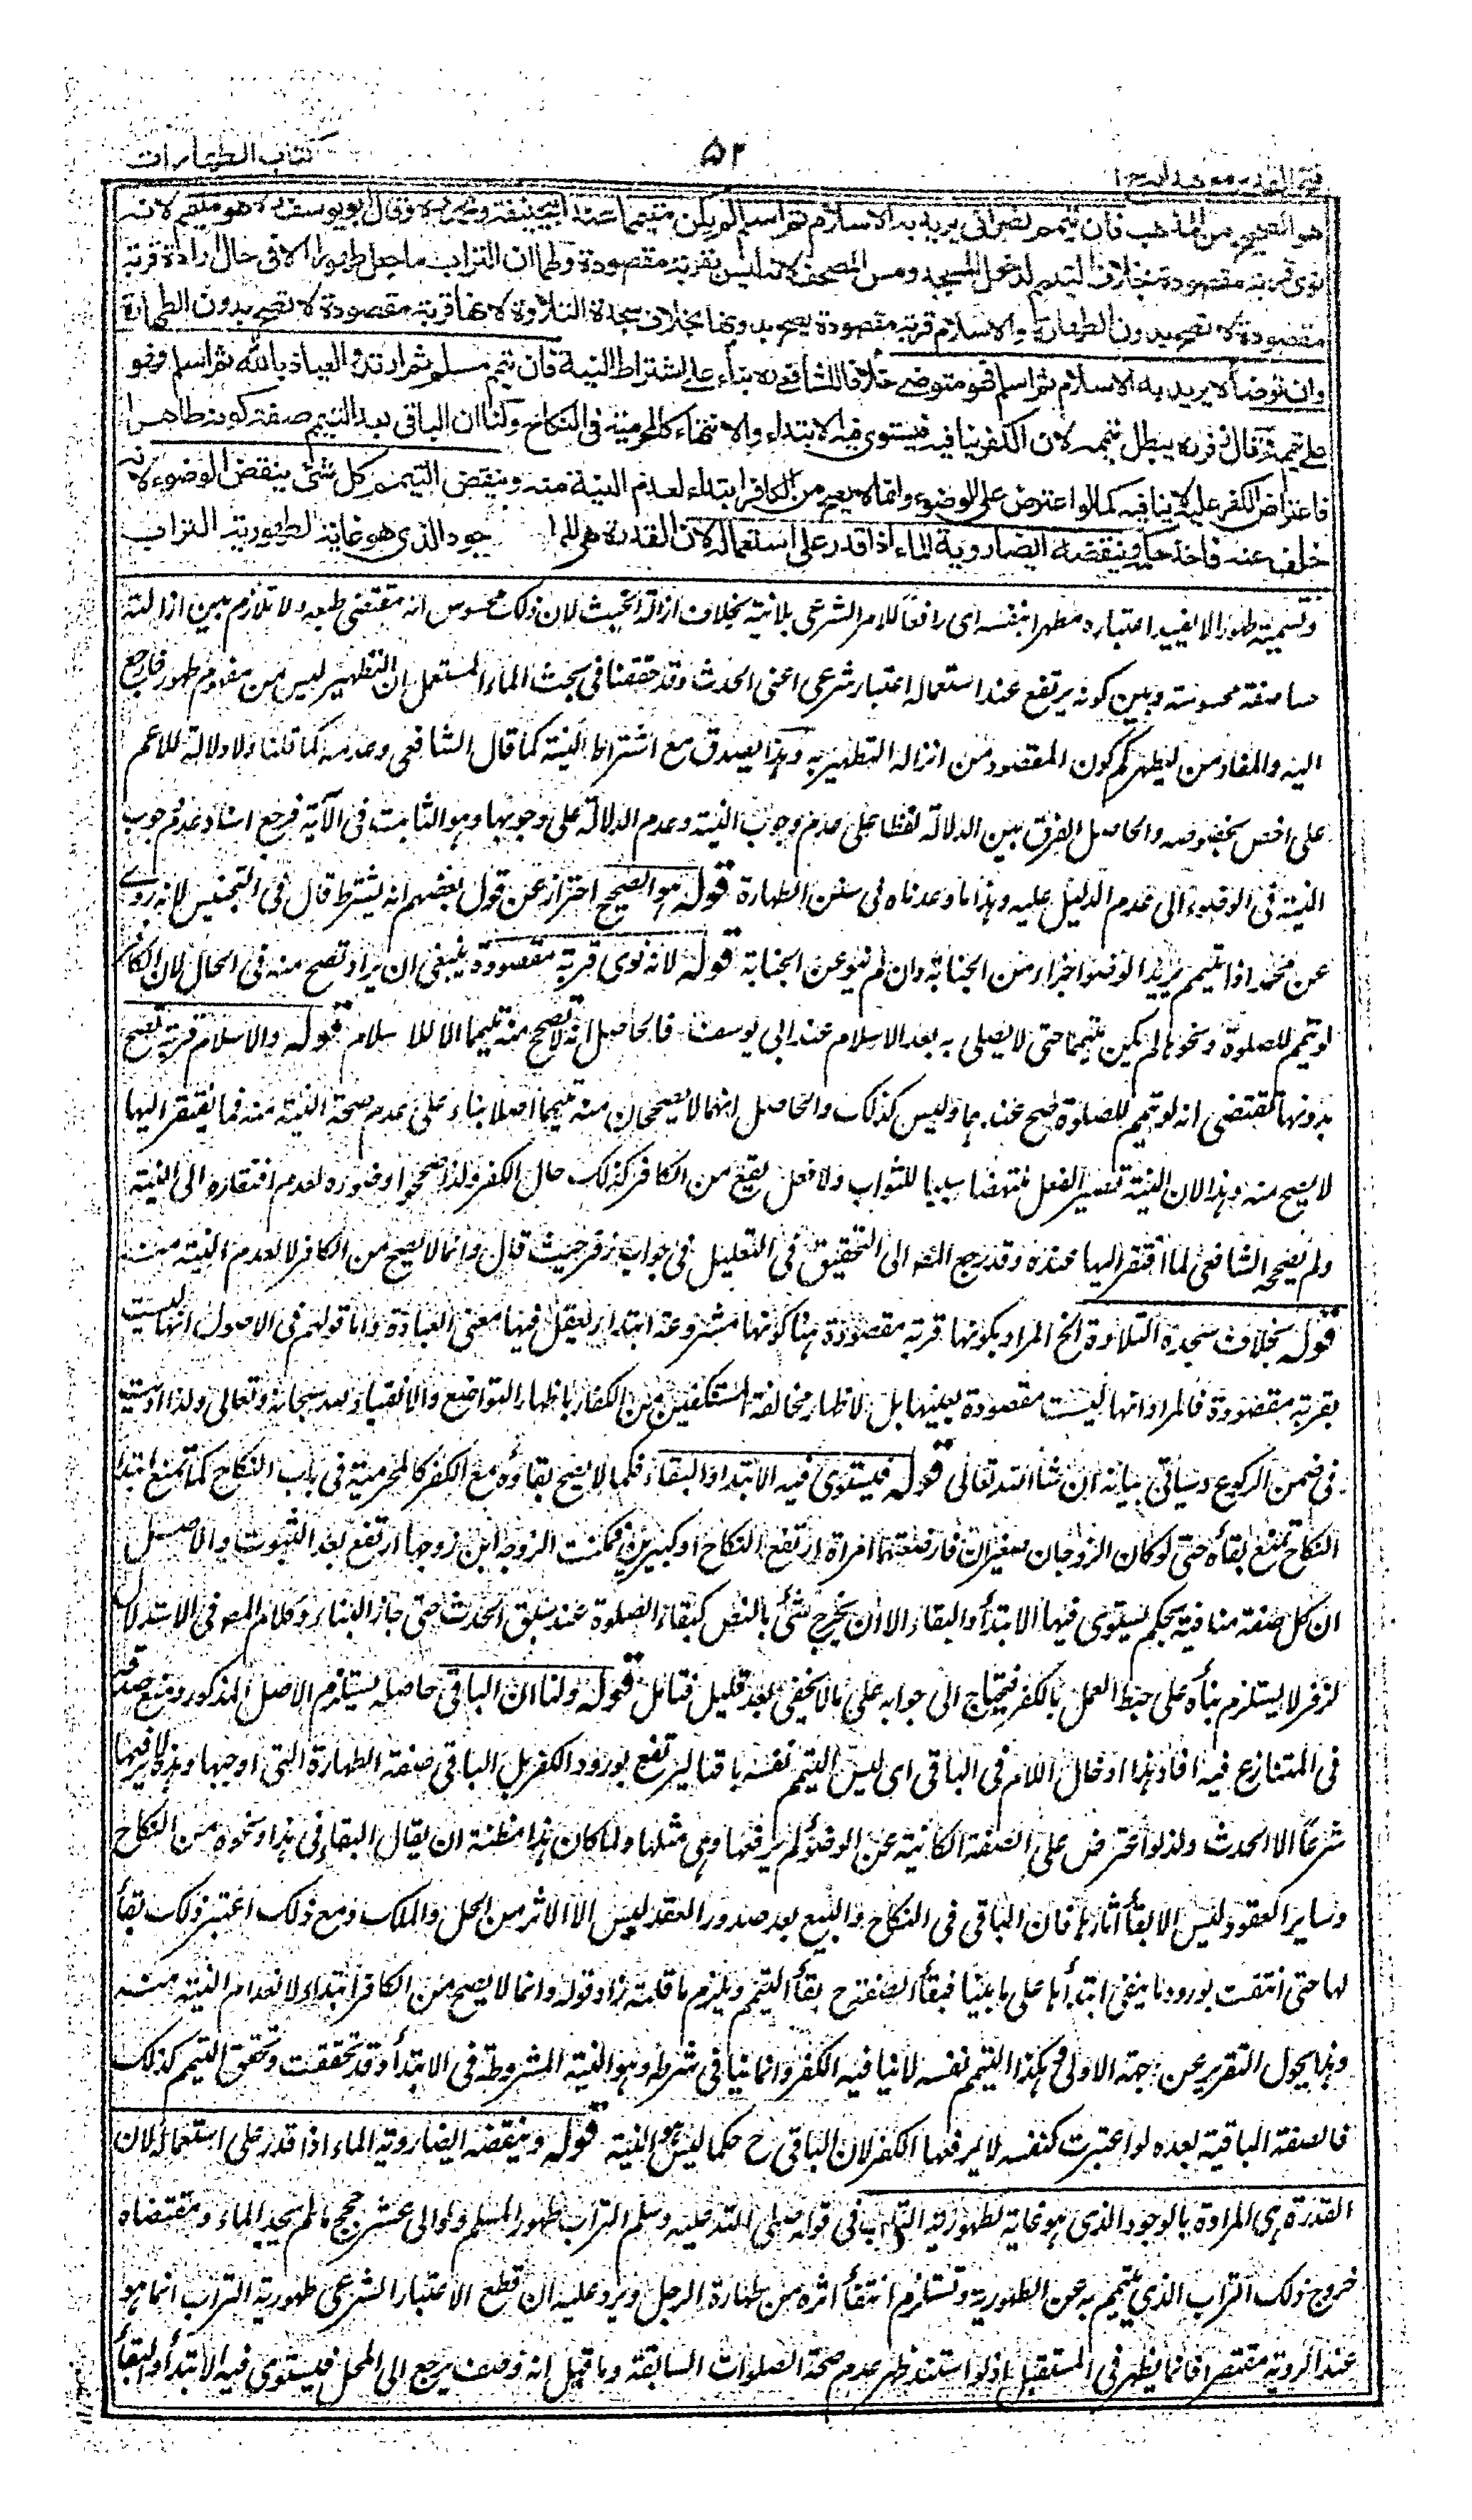 فتح القدير مع هداية ج ١
۵۲
كتاب الطهارات
هو الصحيح من المذهب فان تيمم نصراني يريد به الاسلام ثم اسلم لم يكن متيمما عند ابي حنيفة ومحمد ره وقال ابو يوسف ره هو متيمم لانه
نوى قربة مقصودة بخلاف التيمم لدخول المسجد ومس المصحف لانه ليس بقربة مقصودة ولهما ان التراب ما جعل طهورا الا في حال ارادة قربة
مقصودة لا تصح بدون الطهارة والاسلام قربة مقصودة يصح بدونها بخلاف سجدة التلاوة لانها قربة مقصودة لا تصح بدون الطهارة
وان توضأ لا يريد به الاسلام ثم اسلم فهو متوضئ خلافا للشافعي ره بناء على اشتراط النية فان تيمم مسلم ثم ارتد والعياذ بالله ثم اسلم فهو
على تيممه وقال زفر ره يبطل تيممه لان الكفر ينافيه فيستوي فيه الابتداء والانتهاء كالمحرمية في النكاح ولنا ان الباقي بعد التيمم صفة كونه طاهرا
فاعتراض الكفر عليه لا ينافيه كما لو اعترض على الوضوء وانما لا يصح من الكافر ابتداء لعدم النية منه وينقض التيمم كل شئ ينقض الوضوء لانه
خلف عنه فاخذ حكمه وينقضه ايضا روية الماء اذا قدر على استعماله لان القدرة هي المراد جود الذي هو غاية لطهورية التراب
وتسميته طهورا لا يفيد اعتباره مطهرا بنفسه اى رافعا للامر الشرعى بلا نية بخلاف ازالة الخبث لان ذلك محسوس انه مقتضى طبعه ولا تلازم بين ازالته
حسا صفة محسوسة وبين كونه يرتفع عند استعماله اعتبار شرعى اعنى الحدث وقد حققنا فى بحث الماء المستعمل ان التطهير ليس من مفهوم طهور فارجع
اليه والمفاد من ليطهركم كون المقصود من انزاله التطهير به وهذا يصدق مع اشتراط النية كما قال الشافعى وعدمه كما قلنا ولا دلالة للاعم
على اخص بخصوصه والحاصل الفرق بين الدلالة لفظا على عدم وجوب النية وعدم الدلالة على وجوبها وهو الثابت فى الآية فرجع اسناد عدم وجوب
النية فى الوضوء الى عدم الدليل عليه وهذا ما وعدناه فى سنن الطهارة قوله هو الصحيح احتراز عن قول بعضهم انه يشترط قال فى التجنيس لانه روى
عن محمد اذا تيمم يريد الوضوء اجزاه من الجنابة وان لم ينو عن الجنابة قوله لانه نوى قربة مقصودة ينبغى ان يراد تصح منه فى الحال لان الكافر
لو تيمم للصلوة ونحوها لم يكن متيمما حتى لا يصلى به بعد الاسلام عند ابى يوسف فالحاصل انه لا تصح منه تيمما الا للاسلام قوله والاسلام قربة تصح
بدونها مقتضى انه لو تيمم للصلوة صح عندهما وليس كذلك والحاصل انهما لا يصححان منه تيمما اصلا بناء على عدم صحة النية منه فما يفتقر اليها
لا يصح منه وهذا لان النية تصير الفعل منتهضا سببا للثواب ولا فعل يقع من الكافر كذلك حال الكفر ولذا صححوا وضوءه لعدم افتقاره الى النية
ولم يصححه الشافعى لما افتقر اليها عنده وقد رجع المصـ الى التحقيق فى التعليل فى جواب زفر حيث قال وانما لا يصح من الكافر لانعدام النية منه
قوله بخلاف سجدة التلاوة الخ المراد بكونها قربة مقصودة هنا كونها مشروعة ابتداء يعقل فيها معنى العبادة واما قولهم فى الاصول انها ليست
بقربة مقصودة فالمراد انها ليست مقصودة بعينها بل لاظهار مخالفة المستنكفين من الكفار باظهار التواضع والانقياد لله سبحانه وتعالى ولذا اديت
فى ضمن الركوع وسيأتى بيانه ان شاء الله تعالى قوله فيستوى فيه الابتداء والبقاء فكما لا يصح بقاؤه مع الكفر كالمحرمية فى باب النكاح كما تمنع ابتداء
النكاح تمنع بقاءه حتى لو كان الزوجان صغيرين فارضعتهما امراة ارتفع النكاح او كبيرين فمكنت الزوجة ابن زوجها ارتفع بعد الثبوت والاصل
ان كل صفة منافية لحكم يستوى فيها الابتداء والبقاء الا ان يخرج شئ بالنص كبقاء الصلوة عند سبق الحدث حتى جاز البناء وكلام المصـ فى الاستدلال
لزفر لا يستلزم بناءه على حبط العمل بالكفر فيحتاج الى جوابه على ما لا يخفى بعد قليل فتأمل قوله ولنا ان الباقى حاصله يستلزم الاصل المذكور ومنع صدقه
فى المتنازع فيه افاد هذا ادخال اللام فى الباقى اى ليس التيمم نفسه باقيا ليرتفع بورود الكفر بل الباقى صفة الطهارة التى اوجبها وهذه لا يرفعها
شرعا الا الحدث ولذا لو اعترض على الصفة الكائنة عن الوضوء لم يرفعها وهى مثلها ولما كان هذا مظنة ان يقال البقاء فى هذا ونحوه من النكاح
وسائر العقود ليس الا بقاء آثارها فان الباقى فى النكاح والبيع بعد صدور العقد ليس الا الاثر من الحل والملك ومع ذلك اعتبر ذلك بقاء
لها حتى انتفت بورود ما ينفى ابتداءها على ما بينا فبقاء الصفة ح بقاء التيمم ويلزم ما قلته زاد قوله وانما لا يصح من الكافر ابتداء لانعدام النية منه
وبهذا يحول التقرير عن جهة الاولى هكذا التيمم نفسه لا ينافيه الكفر وانما ينافى شرطه وهو النية المشروطة فى الابتداء وقد تحققت وتحقق التيمم كذلك
فالصفة الباقية بعده لو اعتبرت كنفسه لا يرفعها الكفر لان الباقى ح حكما ليس هو النية قوله وينقضه ايضا روية الماء اذا قدر على استعماله لان
القدرة هى المرادة بالوجود الذى هو غاية لطهورية التراب فى قوله صلى الله عليه وسلم التراب طهور المسلم ولو الى عشر حجج ما لم يجد الماء ومقتضاه
خروج ذلك التراب الذى تيمم به عن الطهورية وتستلزم انتفاء اثره من طهارة الرجل ويرد عليه ان قطع الاعتبار الشرعى طهورية التراب انما هو
عند الروية مقتصرا فانما يظهر فى المستقبل اذ لو استند ظهر عدم صحة الصلوات السابقة وما قيل انه وصف يرجع الى المحل فيستوى فيه الابتداء والبقاء